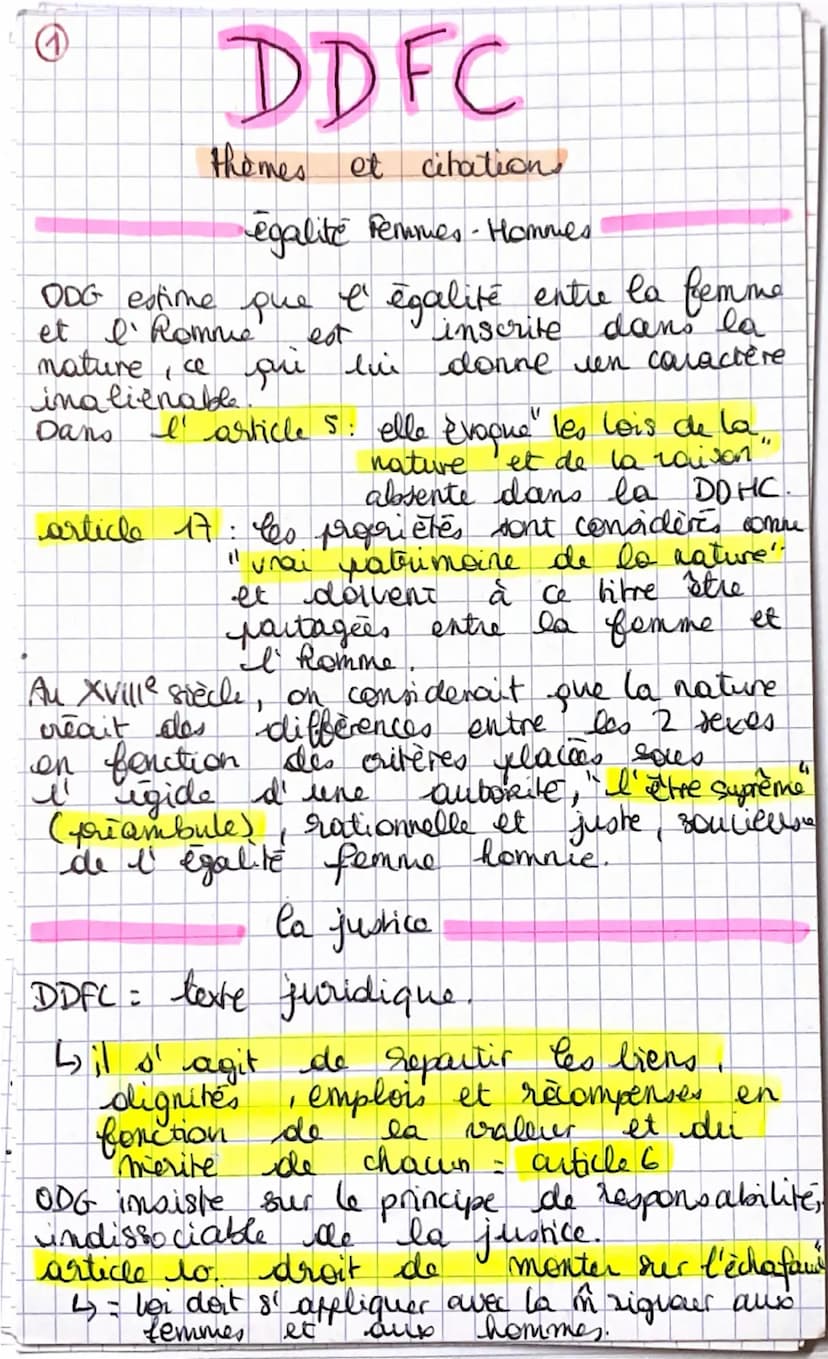 1
DDFC
thèmes et citations
égalité Femmes-Hommes
ODG estime que l'égalité entre la femme
et l'homme est inscrite dans la
nature, ce qui lui donne un caractère
inaliénable.
Dans l'article 5 : elle évoque "les lois de la
nature et de la raison"
absente dans la DDHC.
article 17 : les propriétés sont considérés comme
"vrai patrimoine de la nature"
et doivent à ce titre être
partagées entre la femme et
l'homme.
Au XVIIIe siècle, on considerait que la nature
créait des différences entre les 2 sexes
en fonction des critères placées sous
l'égide d'une autorité, "l'être suprême"
(préambule), rationnelle et juste, soucieuse
de l'égalité femme homme.
la justice
DDFC = texte juridique.
↳ il s'agit de repartir les biens,
dignités, emplois et récompenses en
fonction de la valeur et du
mérite de chacun = article 6
ODG insiste sur le principe de responsabilité,
indissociable de la justice.
article 10. droit de monter sur l'échafaud"
↳ = loi doit s'appliquer avec la m̂ rigueur aux
femmes et aux hommes.